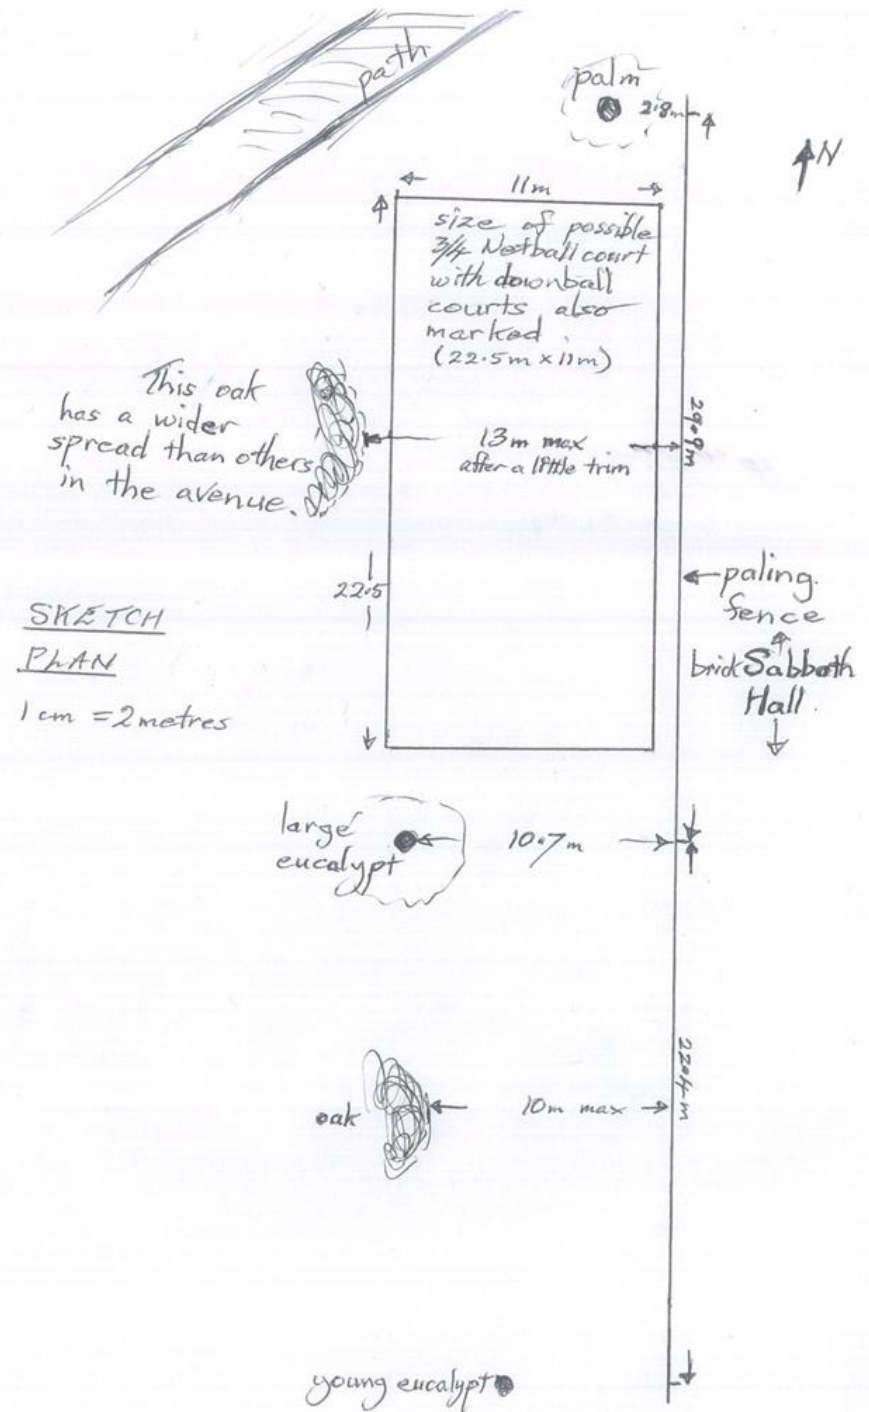 path
palm
2.8m
N
11m
size of possible
3/4 Netball court
with downball
courts also
marked.
(22.5m x 11m)
This oak
has a wider
spread than others
in the avenue.
13m max
after a little trim
22.5
paling
fence
brick Sabbath
Hall.
SKETCH
PLAN
1 cm = 2 metres
large
eucalypt
10.7m
oak
10m max
22.4m
young eucalypt